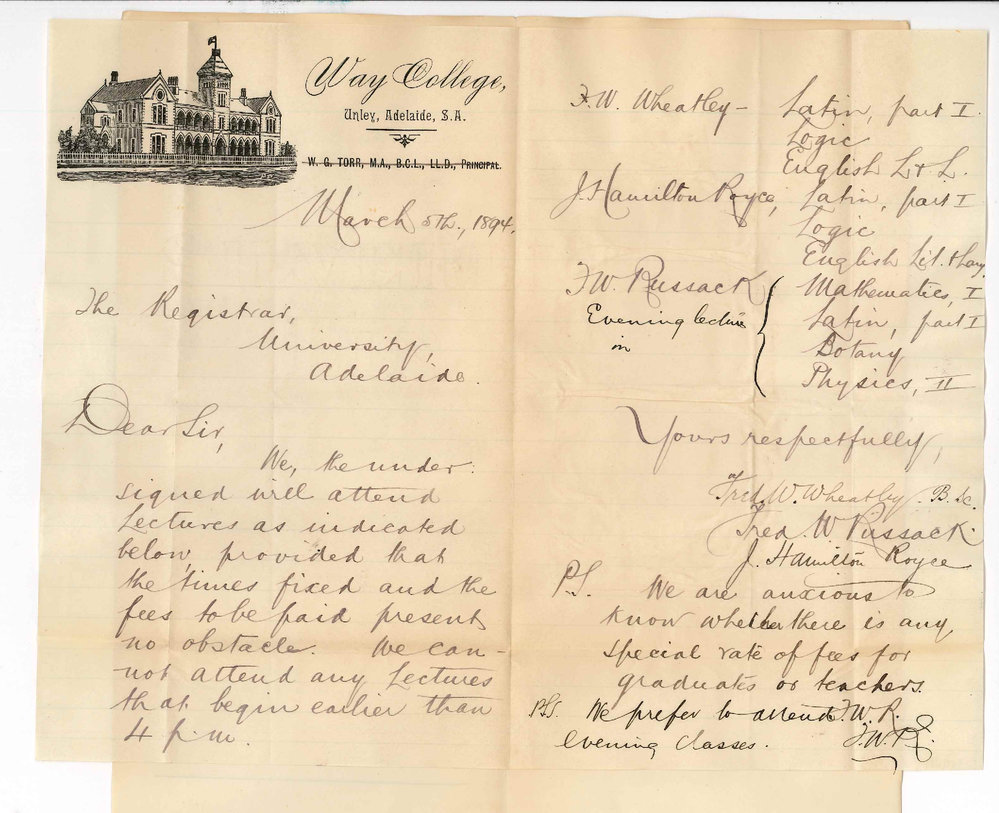 Way College,
Unley, Adelaide, S.A.
W. G. TORR, M.A., B.C.L., LL.D., PRINCIPAL.
March 5th., 1894.
The Registrar,
University,
Adelaide.
Dear Sir,
We, the under-
signed will attend
Lectures as indicated
below, provided that
the times fixed and the
fees to be paid present
no obstacle. We can-
not attend any Lectures
that begin earlier than
4 p.m.
F. W. Wheatley - Latin, part I.
Logic
English L & L.
J. Hamilton Royce, Latin, part I
Logic
English Lit. & Lang.
F W. Russack Mathematics, I
Evening lecture Latin, part I
in Botany
Physics, II
Yours respectfully,
Fred. W. Wheatley. B. Sc.
Fred. W Russack.
J. Hamilton Royce
P.S. We are anxious to
know whether there is any
special rate of fees for
graduates or teachers.
PSS. We prefer to attend F. W. R.
evening classes.